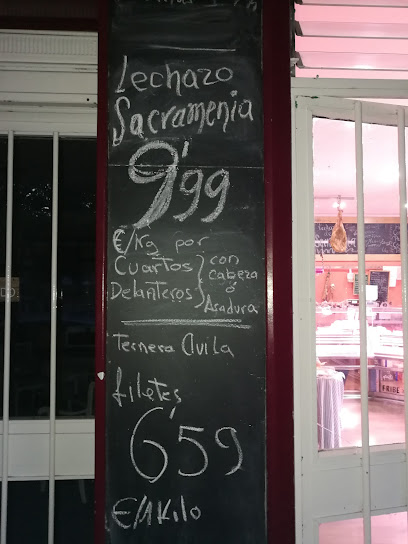 Lechazo
Sacramenia
9'99
€/Kg por
Cuartos
Delanteros
con
cabeza
ó
Asadura
Ternera Avila
filetes
6'59
€/1 Kilo